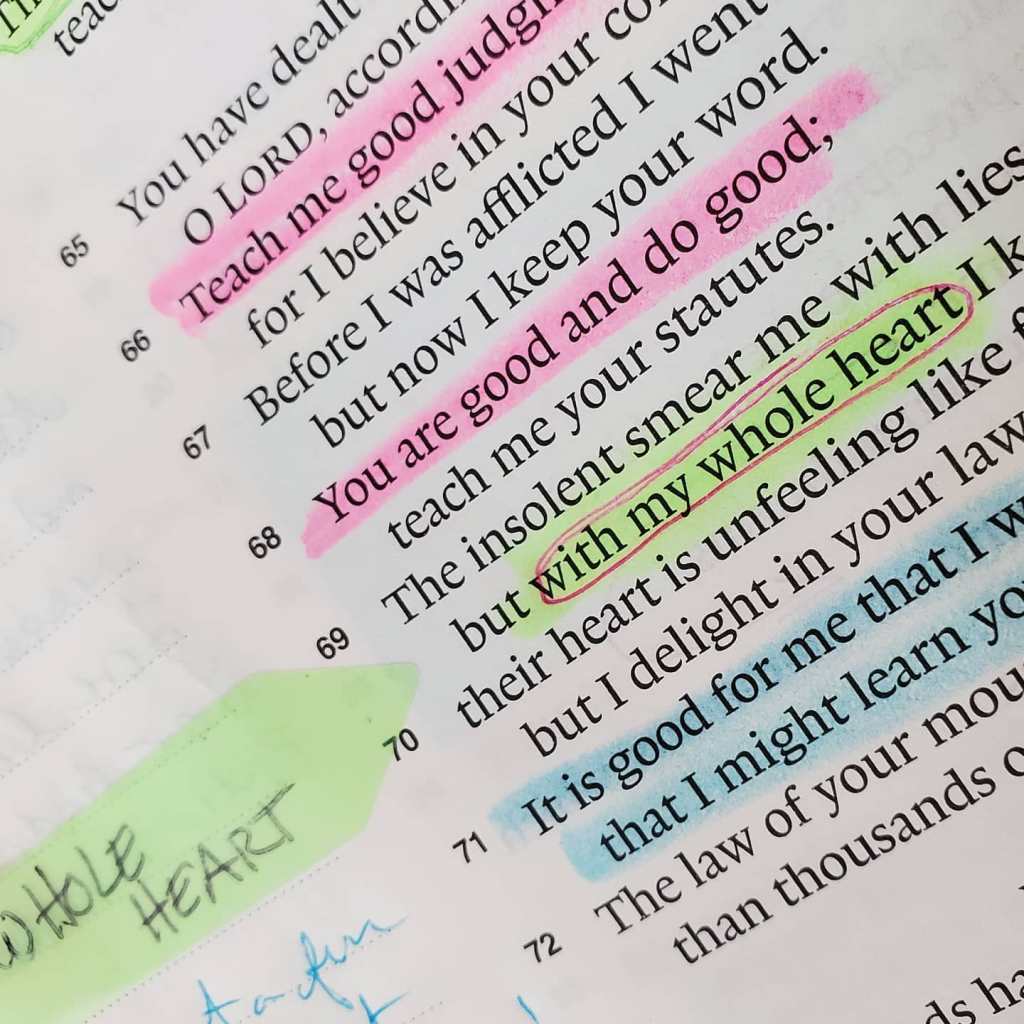 teac
65 You have dealt
O LORD, accordi
66 Teach me good judgm
for I believe in your co
67 Before I was afflicted I went
but now I keep your word.
68 You are good and do good;
teach me your statutes.
69 The insolent smear me with lies
but with my whole heart I k
70 their heart is unfeeling like f
but I delight in your law
71 It is good for me that I w
that I might learn yo
72 The law of your mou
than thousands o
ds ha
WHOLE
HEART